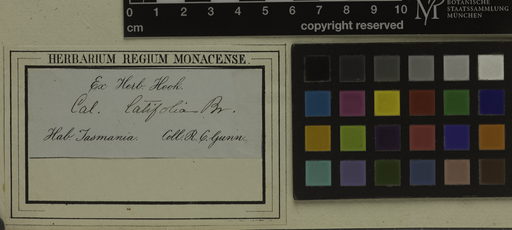 0 1 2 3 4 5 6 7 8 9 10
cm
copyright reserved
BOTANISCHE
STAATSSAMMLUNG
MÜNCHEN
HERBARIUM REGIUM MONACENSE.
Ex Herb. Hook.
Cal. latifolia Br.
Hab. Tasmania. Coll. R. C. Gunn.